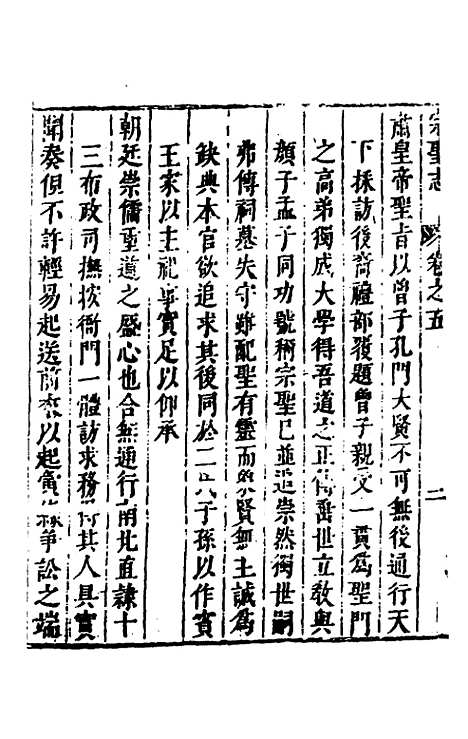 宗聖志 卷之五 二
肅皇帝聖旨以曾子孔門大賢不可無後通行天
下採訪後裔禮部覆題曾子親文一貫為聖門
之高弟獨成大學得吾道之正傳垂世立教與
顏子孟子同功號稱宗聖已並追崇然獨世嗣
弗傳祠墓失守雖配聖有靈而象賢無主誠為
缺典本官欲追求其後同於二氏子孫以作賓
王家以主祀事實足以仰承
朝廷崇儒重道之盛心也合無通行南北直隸十
三布政司撫按衙門一體訪求務得其人具實
聞奏但不許輕易起送前來以起夤緣爭訟之端